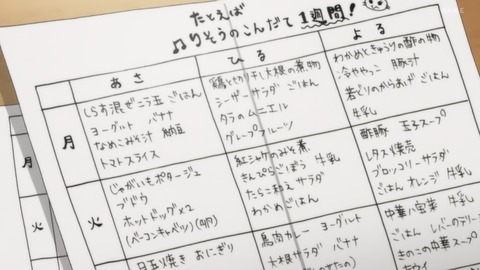 たとえば
♫りそうのこんだて1週間!
あさ
ひる
よる
月
しらす混ぜニラ玉 ごはん
ヨーグルト バナナ
なめこみそ汁 納豆
トマトスライス
鶏と切り干し大根の煮物
シーザーサラダ ごはん
タラのムニエル
グレープフルーツ
わかめときゅうりの酢の物
冷ややっこ 豚汁
若どりのからあげ ごはん
牛乳
火
じゃがいもポタージュ
ブドウ
ホットドッグ×2
(ベーコンキャベツ)
紅シャケのみそ煮
きんぴらごぼう 牛乳
たらこ和え サラダ
わかめごはん
酢豚 玉子スープ
レタス焼売
ブロッコリーサラダ
ごはん オレンジ 牛乳
目玉焼き おにぎり
鳥肉カレー ヨーグルト
大根サラダ バナナ
中華八宝菜 牛乳
ごはん レバーの
きのこの中華スープ
キウイ
月
火